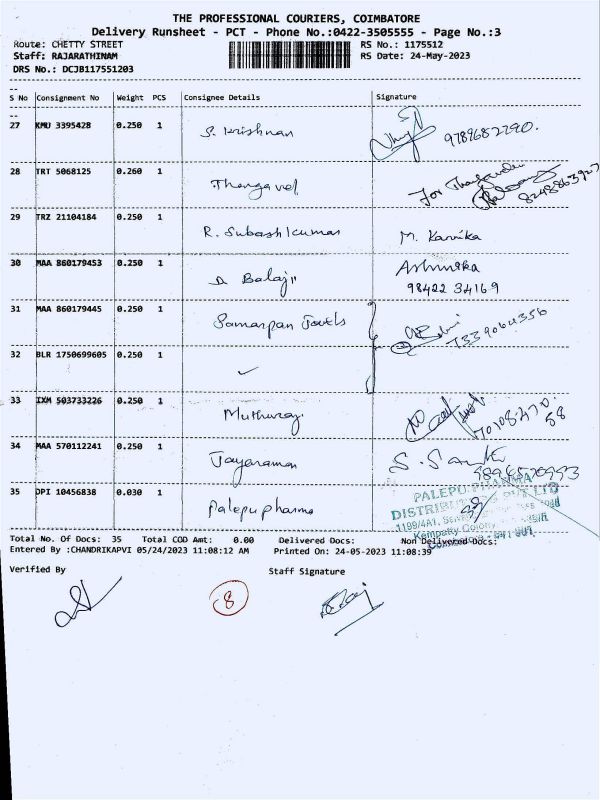 THE PROFESSIONAL COURIERS, COIMBATORE
Delivery Runsheet - PCT - Phone No.:0422-3505555 - Page No.:3
Route: CHETTY STREET RS No.: 1175512
Staff: RAJARATHINAM RS Date: 24-May-2023
DRS No.: DCJB117551203
S No Consignment No Weight PCS Consignee Details Signature
27 KMU 3395428 0.250 1 S. Krishnan 9789682290.
28 TRT 5068125 0.260 1 Thangavel for 8248863927
29 TRZ 21104184 0.250 1 R. Subash kumar M. Karvika
30 MAA 860179453 0.250 1 Balaji 98422 34169
31 MAA 860179445 0.250 1 Samarpan
32 BLR 1750699605 0.250 1 ✓
33 IXM 503733226 0.250 1 Muthuraj
34 MAA 570112241 0.250 1 Jayaraman
35 DPI 10456838 0.030 1 Palepu pharma
PALEPU PHARMA
DISTRIBUTORS PVT LTD
1199/4A1,
Kempatty Colony
Total No. Of Docs: 35 Total COD Amt: 0.00 Delivered Docs: Non Delivered Docs:
Entered By :CHANDRIKAPVI 05/24/2023 11:08:12 AM Printed On: 24-05-2023 11:08:39
Verified By Staff Signature
8